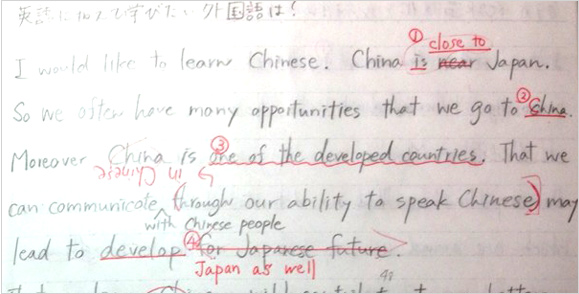 英語に加えて学びたい外国語は！
① close to
I would like to learn Chinese. China is near Japan.
So we often have many opportunities that we go to ② China.
Moreover China is ③ one of the developed countries. That we
in Chinese
can communicate through our ability to speak Chinese may
with Chinese people
lead to develop ④ for Japanese future.
Japan as well